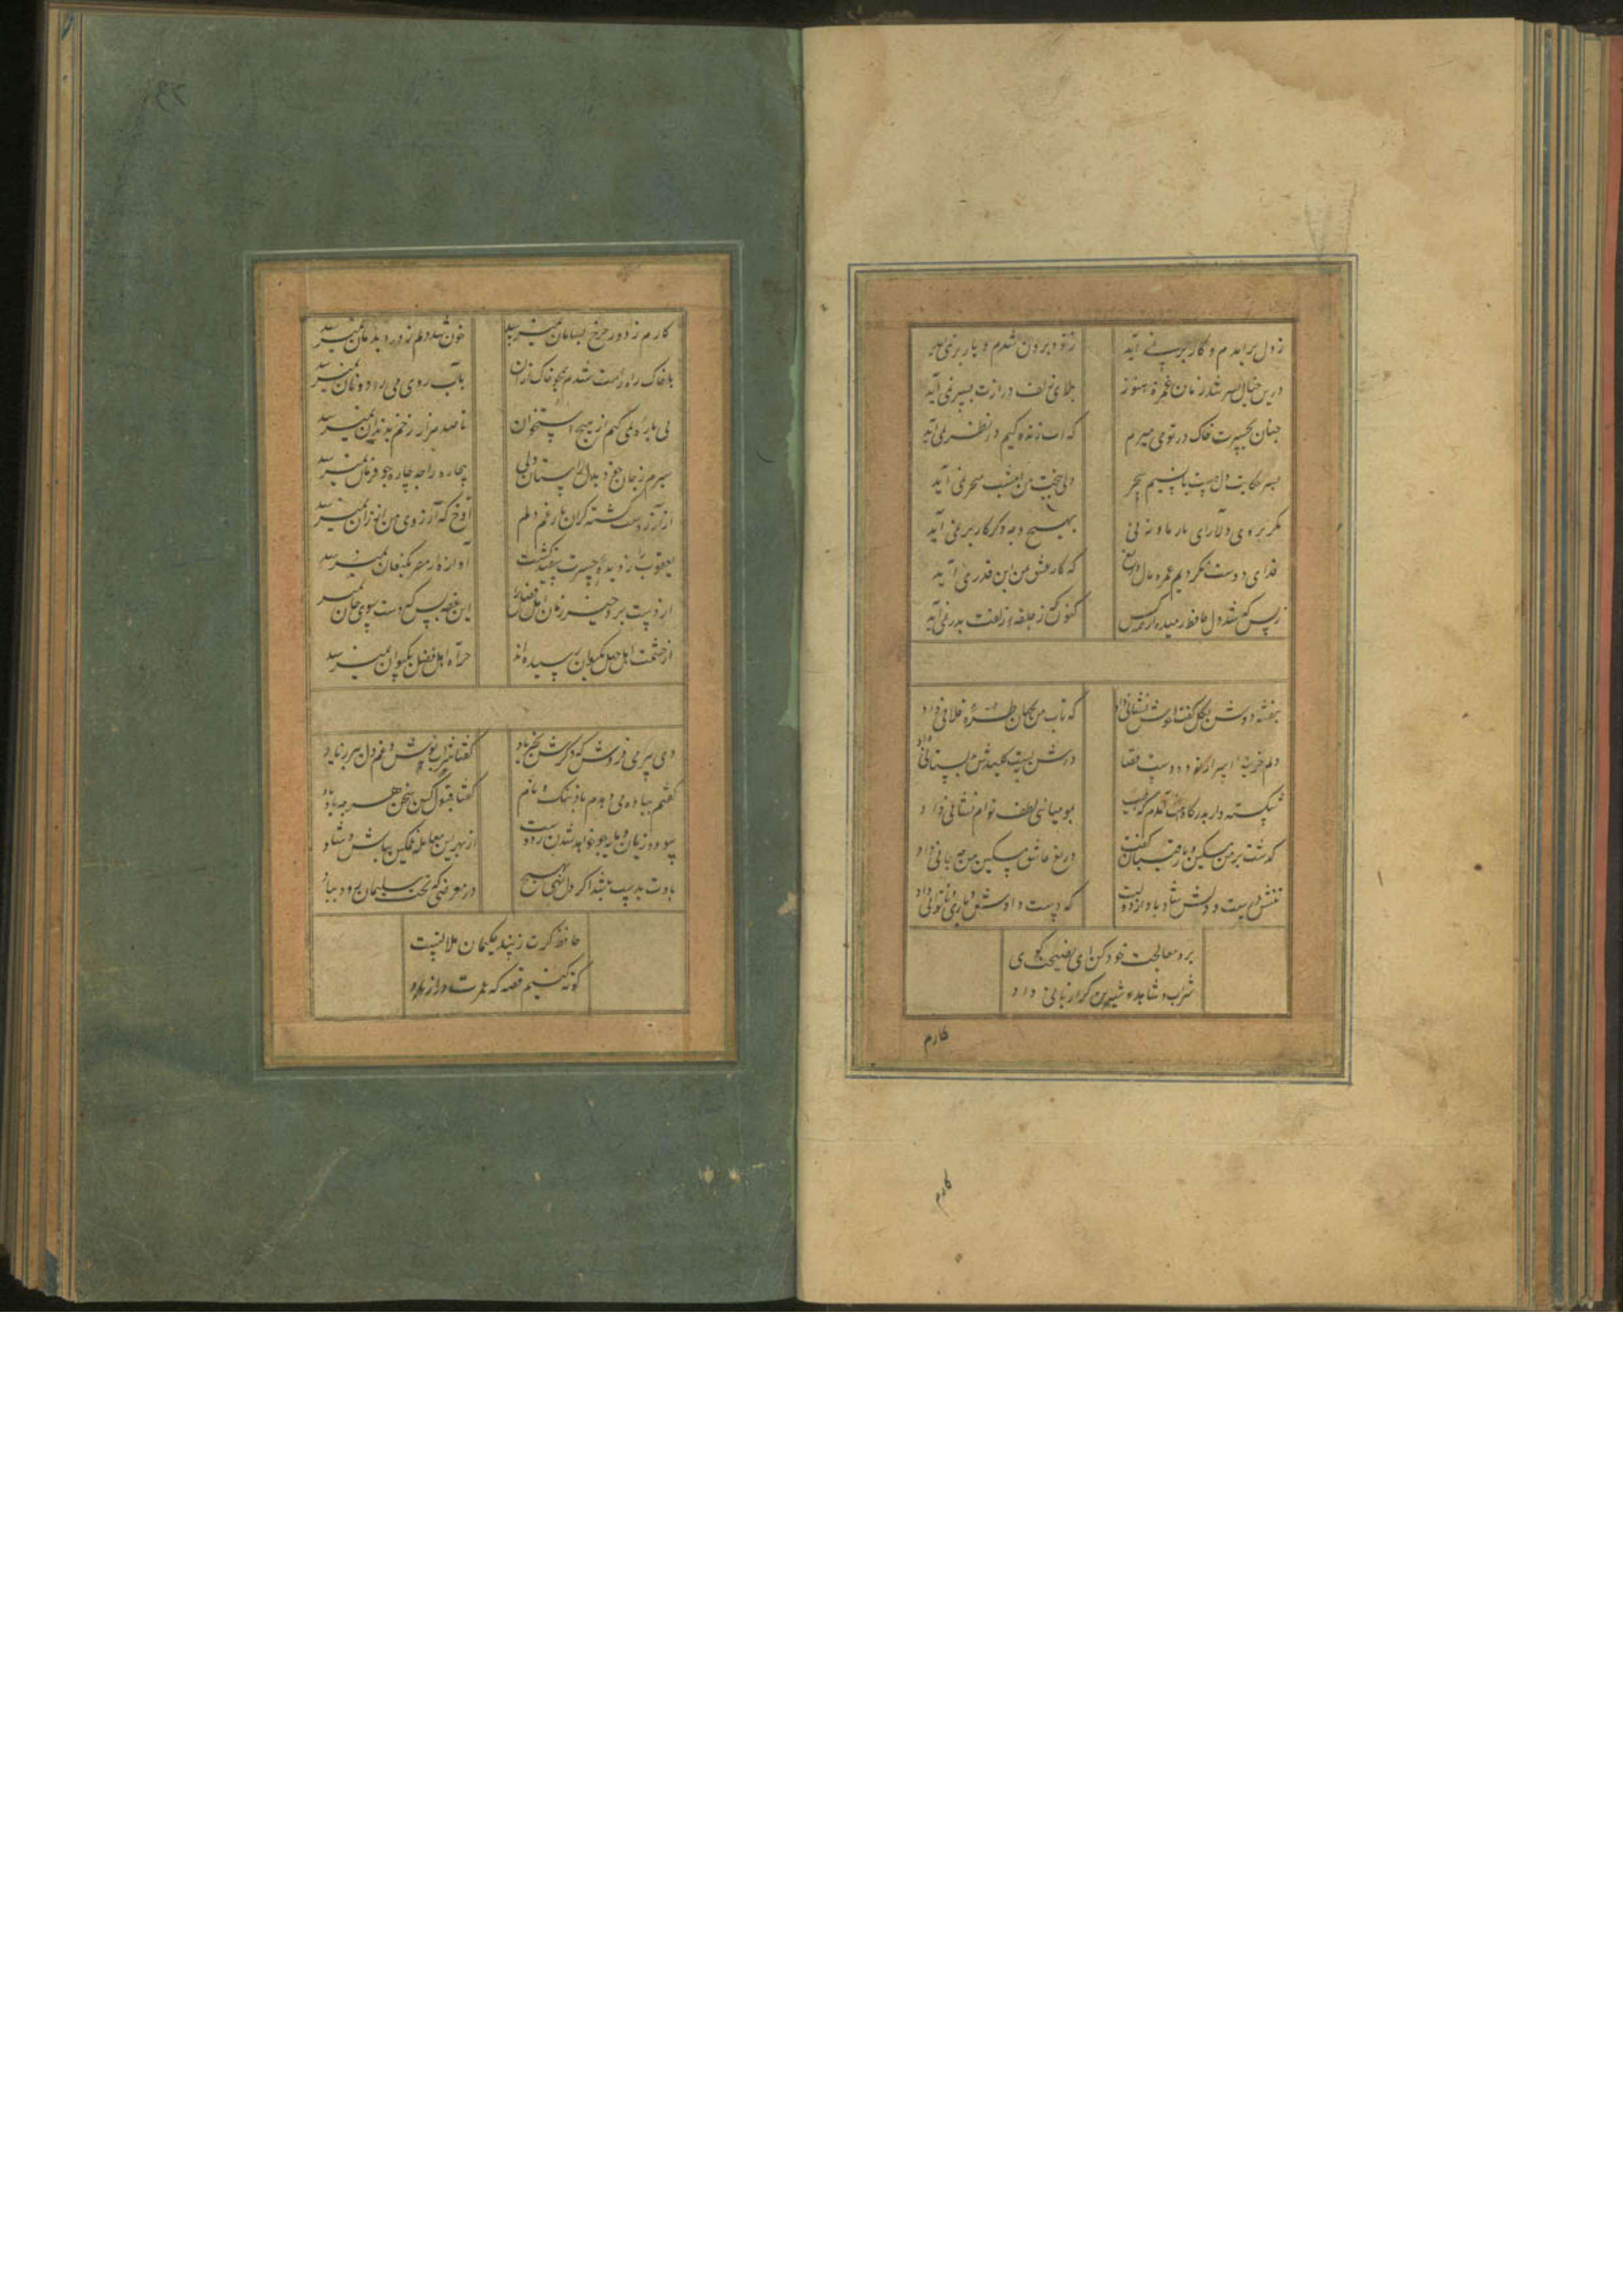 ز دل برآمدم و کار بر نمی آید
ز خود برون شدم و یار بر نمی آید
درین خیال بسر شد زمان عمر و هنوز
بلای زلف درازت بسر نمی آید
چنان بحسرت خاک در تو می میرم
که آب زندگیم در نظر نمی آید
بسر حکایت دل هست با نسیم سحر
ولی ببخت من امشب سحر نمی آید
مگر بروی دلارای یار ما ورنی
بهیچ وجه دگر کار بر نمی آید
فدای دوست نکردیم عمر و مال دریغ
که کار عشق ز من این قدر نمی آید
ز بس که شد دل حافظ رمیده از همه کس
کنون ز حلقه زلفت بدر نمی آید
بنفشه دوش بگل گفت و خوش نشانی داد
که تاب من بجهان طره فلانی داد
دلم خزینه اسرار بود و دست قضا
درش ببست و کلیدش بدلستانی داد
شکسته وار بدرگاهت آمدم که طبیب
بمومیائی لطف توام نشانی داد
گذشت بر من مسکین و با رقیبان گفت
دریغ عاشق مسکین من چه جانی داد
تنش درست و دلش شاد باد از دولت
که دست دادش و یاری ناتوانی داد
برو معالجت خود کن ای نصیحت گوی
شراب و شاهد شیرین کرا زیانی داد
کارم
کارم
کارم ز دور چرخ بسامان نمیرسد
خون شد دلم ز درد بدرمان نمیرسد
با خاک راه راست شدم همچو خاک و زان
تا آب روی می رود و نان نمیرسد
پی پاره ای نمی کنم از هیچ استخوان
تا صد هزار زخم بدندان نمیرسد
سیرم ز جان خود بدل راستان ولی
بیچاره را چه چاره چو فرمان نمیرسد
از آرزوست گشته گران بار غم دلم
آوخ که آرزوی من ارزان نمیرسد
یعقوب را دو دیده ز حسرت سفید گشت
آوازه ز مصر بکنعان نمیرسد
از دستبرد جور زمان اهل فضل را
این غصه بس که دست سوی جان نمیرسد
از حشمت اهل جهل بکیوان رسیده اند
جز آه اهل فضل بکیوان نمیرسد
دی پیر می فروش که ذکرش بخیر باد
گفتا شراب نوش و غم دل ببر ز یاد
گفتم بباد می دهدم باده ننگ و نام
گفتا قبول کن سخن و هر چه باد باد
سود و زیان و مایه چو خواهد شدن ز دست
از بهر این معامله غمگین مباش و شاد
بادت بدست باشد اگر دل نهی بهیچ
در معرضی که تخت سلیمان رود بباد
حافظ گرت ز پند حکیمان ملالتست
کوته کنیم قصه که عمرت دراز باد